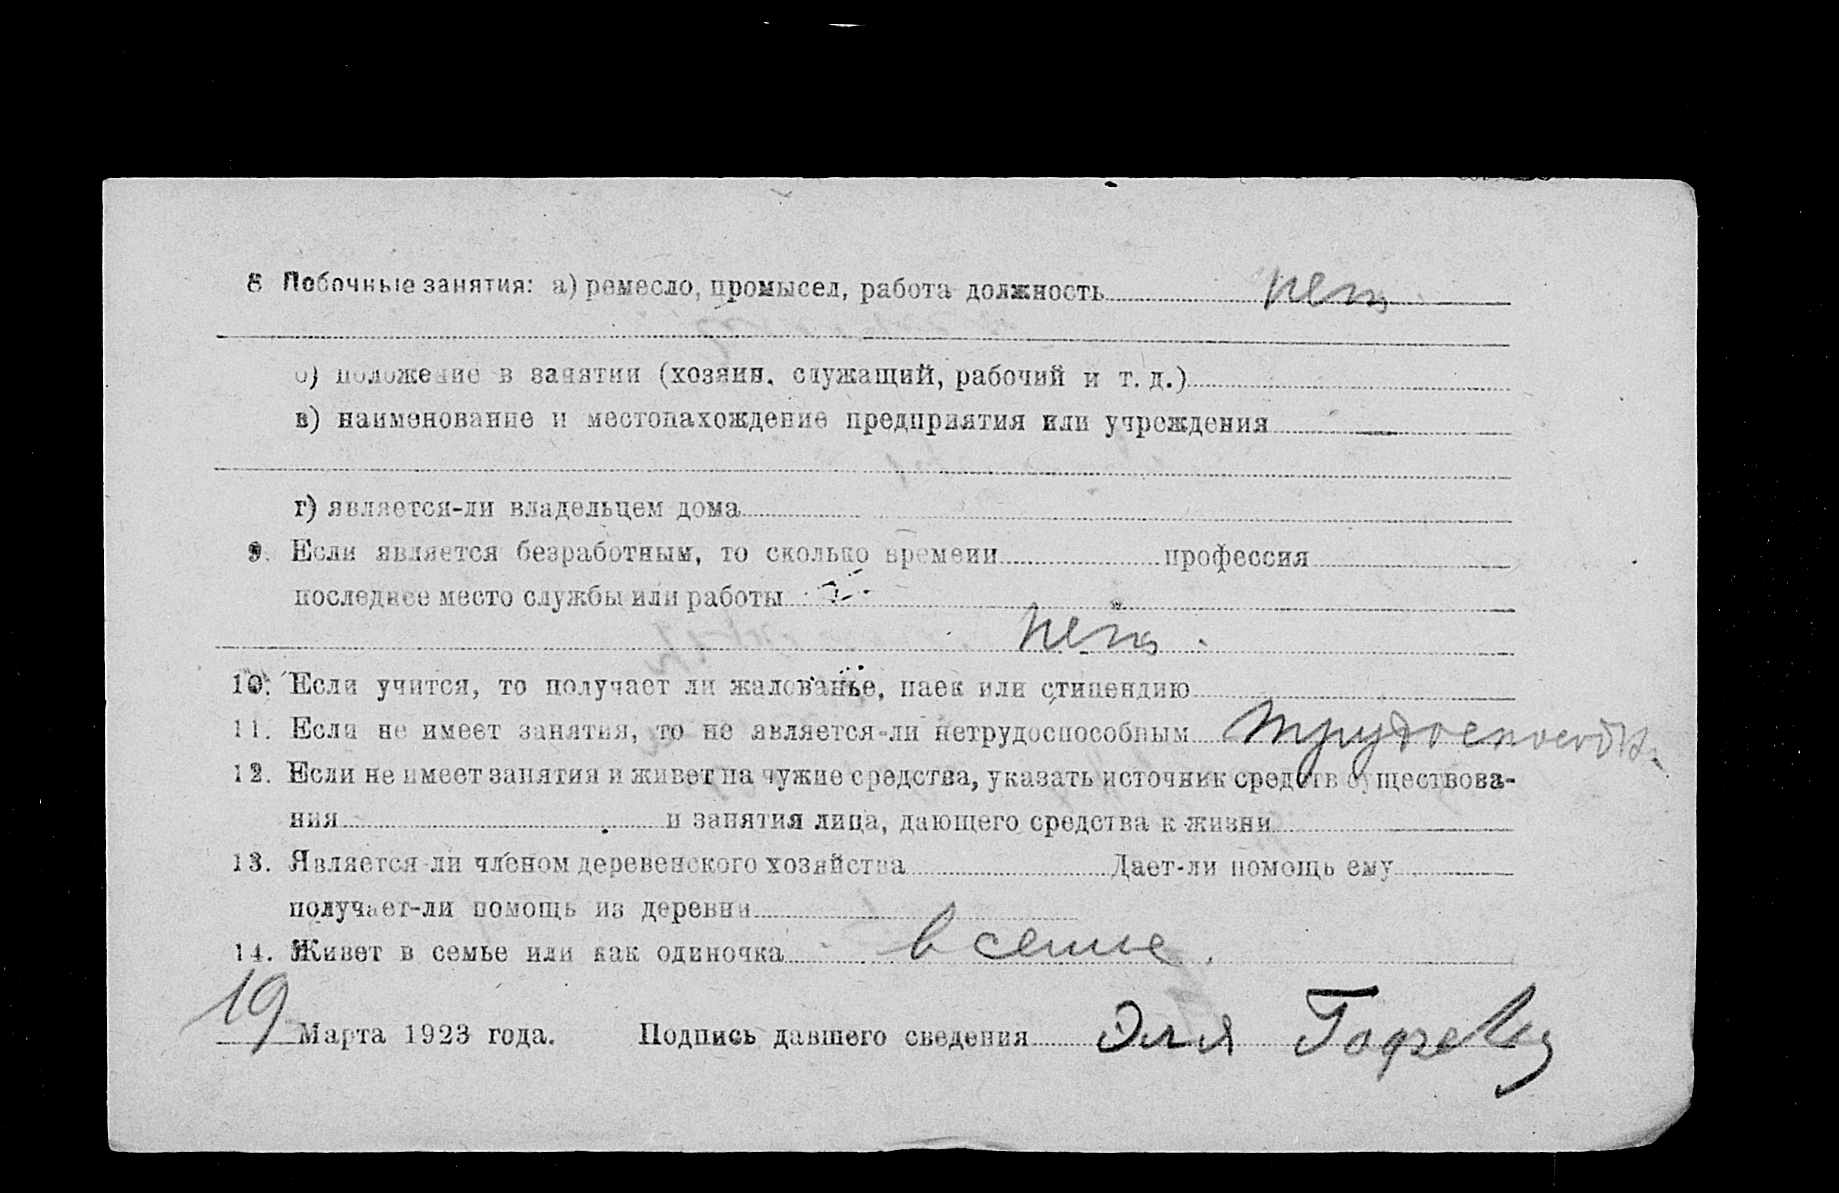 8 Побочные занятия: а) ремесло, промысел, работа должность нет
б) положение в занятии (хозяин, служащий, рабочий и т. д.)
в) наименование и местонахождение предприятия или учреждения —
г) является-ли владельцем дома
9. Если является безработным, то сколько времени профессия
последнее место службы или работы
нет.
10. Если учится, то получает ли жалованье, паек или стипендию
11. Если не имеет занятия, то не является-ли нетрудоспособным трудоспособн.
12. Если не имеет занятия и живет на чужие средства, указать источник средств существова-
ния и занятия лица, дающего средства к жизни
13. Является-ли членом деревенского хозяйства Дает-ли помощь ему
получает-ли помощь из деревни
14. Живет в семье или как одиночка в семье.
19 Марта 1923 года. Подпись давшего сведения Эля